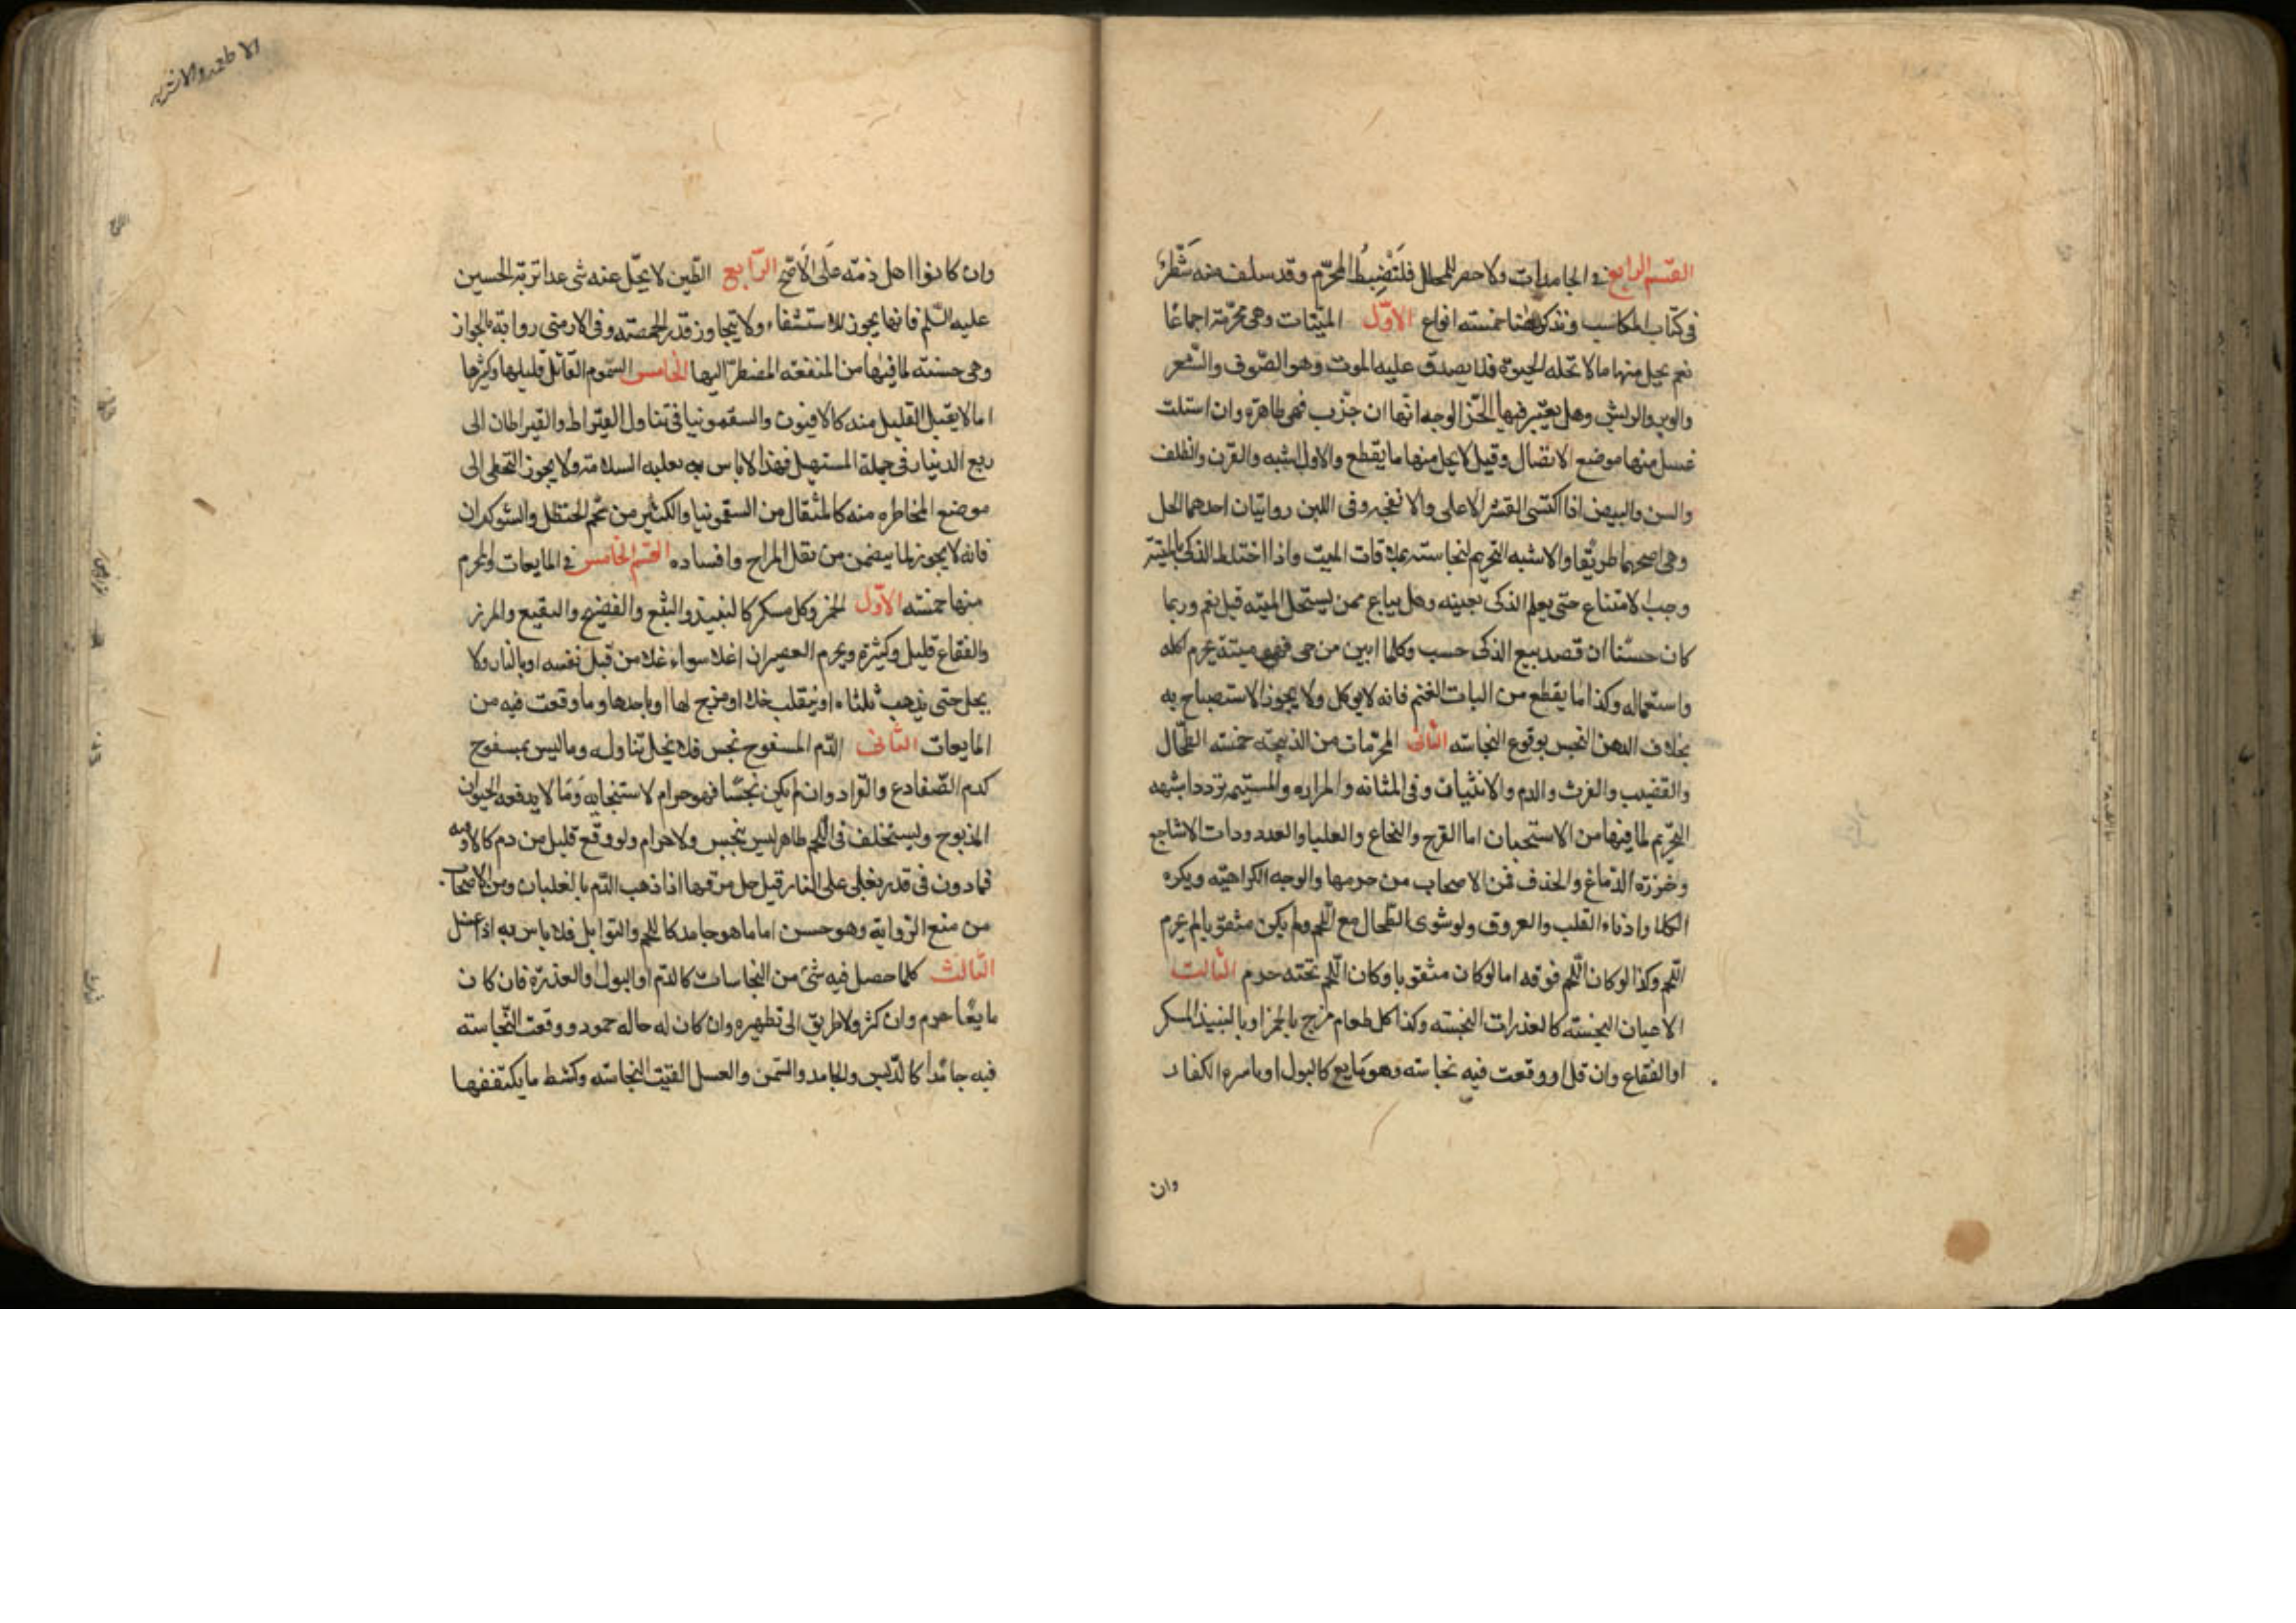 القسم الرابع في الجامدات ولا حصر للمحلل فلتضبط المحرم وقد سلف منه شطر
في كتاب المكاسب ونذكر هنا خمسة انواع الاول الميتات وهى محرمة اجماعا
نعم يحل منها مالا تحله الحيوة فلا يصدق عليه الموت وهو الصوف والشعر
والوبر والريش وهل يعتبر فيها الجز الوجه انها ان جزت فهى طاهرة وان استلت
غسل منها موضع الاتصال وقيل لا يحل منها ما يقطع والاول اشبه والقرن والظلف
والسن والبيض اذا اكتسى القشر الاعلى والانفحه وفى اللبن روايتان احدهما الحل
وهى اصحهما طريقا والاشبه التحريم لنجاسته بملاقات الميت واذا اختلط الذكى بالميتة
وجب الامتناع حتى يعلم الذكى بعينه وهل يباع ممن يستحل الميته قيل نعم وربما
كان حسنا ان قصد بيع الذكى حسب وكلما ابين من حى فهو ميتة يحرم اكله
واستعماله وكذا ما يقطع من اليات الغنم فانه لا يوكل ولا يجوز الاستصباح به
بخلاف الدهن النجس بوقوع النجاسه الثانى المحرمات من الذبيحة خمسه الطحال
والقضيب والفرث والدم والانثيان وفى المثانه والمراره والمشيمه تردد اشبهه
التحريم لما فيها من الاستخباث اما الفرج والنخاع والعلبا والغدد وذات الاشاجع
وخرزة الدماغ والحدق فمن الاصحاب من حرمها والوجه الكراهيه ويكره
الكلا واذناء القلب والعروق ولو شوى الطحال مع اللحم ولم يكن مثقوبا لم يحرم
اللحم وكذا لو كان اللحم فوقه اما لو كان مثقوبا وكان اللحم تحته حرم الثالث
الاعيان النجسه كالعذرات النجسه وكذا كل طعام مزج بالخمر او بالنبيذ المسكر
او الفقاع وان قل او وقعت فيه نجاسة وهو مايع كالبول او باسره الكفار
وان
الاطعمه والاشربه
وان كانوا اهل ذمة على الاصح الرابع الطين لا يحل عنه شى عدا تربة الحسين
عليه السلم فانها يجوز للاستشفاء ولا يتجاوز قدر الحمصه وفى الارمنى رواية بالجواز
وهى حسنة لما فيها من المنفعه المضطر اليها الخامس السموم القاتل قليلها وكثيرها
اما لا يقتل القليل منه كالافيون والسقمونيا فى تناول القيراط والقيراطان الى
ربع الدينار فى جملة المسهل فهذا لا باس به لغلبه السلامة ولا يجوز التخطى الى
موضع المخاطره منه كالمثقال من السقمونيا والكثير من شحم الحنظل والشوكران
فانه لا يجوز لما يتضمن من ثقل المزاج وافساده القسم الخامس في المايعات والمحرم
منها خمسة الاول الخمر وكل مسكر كالنبيذ والبتع والفضيخ والنقيع والمزر
والفقاع قليل وكثيره ويحرم العصير ان اغلا سواء غلا من قبل نفسه او بالنار ولا
يحل حتى يذهب ثلثاه او ينقلب خلا او مزج لها او باحدها وما وقعت فيه من
المايعات الثانى الدم المسفوح نجس فلا يحل تناوله وما ليس بمسفوح
كدم الضفادع والقراد وان لم يكن نجسا فهو حرام لاستخباثه وما لا يدفعه الحيوان
المذبوح ويستخلف فى اللحم طاهر ليس بنجس ولا حرام ولو وقع قليل من دم كالاوقيه
فما دون فى قدر يغلى على النار قيل حل مرقها اذا ذهب الدم بالغليان ومن الاصحاب
من منع الرواية وهو حسن اما ما هو جامد كاللحم والتوابل فلا باس به اذا غسل
الثالث كلما حصل فيه شئ من النجاسات كالدم او البول او العذرة فان كان
مايعا حرم وان كثر ولا طريق الى تطهيره وان كان له حاله جمود ووقعت النجاسة
فيه جامدا كالدبس والجامد والسمن والعسل القيت النجاسه وكشط ما يكتنفها